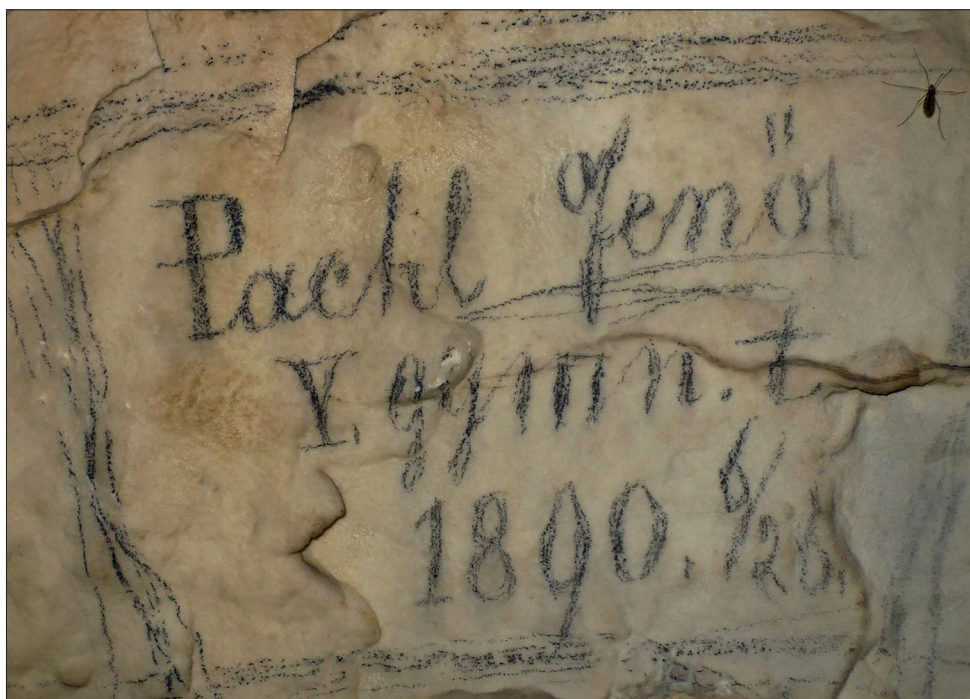 Pachl Jenő
V. gymn. t.
1890. 6/28.